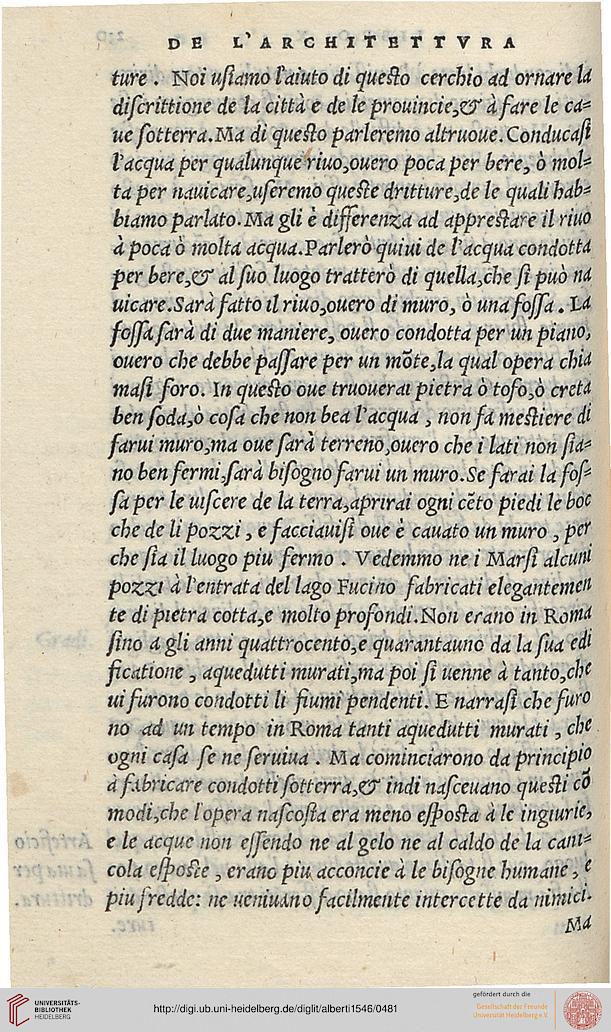 DE L'ARCHITETTVRA
ture . Noi uſiamo l'aiuto di queſto cerchio ad ornare la
diſcrittione de la città e de le prouincie,& à fare le ca=
ue ſotterra.Ma di queſto parleremo altruoue. Conducaſi
l'acqua per qualunque riuo,ouero poca per bere, ò mol=
ta per nauicare,uſeremo queſte dritture,de le quali hab=
biamo parlato. Ma gli è differenza ad appreſtare il riuo
à poca ò molta acqua.Parlerò quiui de l'acqua condotta
per bere,& al ſuo luogo tratterò di quella,che ſi può na
uicare.Sarà fatto il riuo,ouero di muro, ò una foſſa . La
foſſa ſarà di due maniere, ouero condotta per un piano,
ouero che debbe paſſare per un mõte,la qual opera chia
maſi foro. In queſto oue truouerai pietra ò tofo,ò creta
ben ſoda,ò coſa che non bea l'acqua , non fa meſtiere di
farui muro,ma oue ſarà terreno,ouero che i lati non ſia=
no ben fermi,ſarà biſogno farui un muro.Se farai la foſ=
ſa per le uiſcere de la terra,aprirai ogni cẽto piedi le boc
che de li pozzi , e facciauiſi oue è cauato un muro , per
che ſia il luogo piu fermo . Vedemmo ne i Marſi alcuni
pozzi à l'entrata del lago Fucino fabricati elegantemen
te di pietra cotta,e molto profondi.Non erano in Roma
ſino a gli anni quattrocento,e quarantauno da la ſua edi
ficatione , aquedutti murati,ma poi ſi uenne à tanto,che
ui furono condotti li fiumi pendenti. E narraſi che furo
no ad un tempo in Roma tanti aquedutti murati , che
ogni caſa ſe ne ſeruiua . Ma cominciarono da principio
à fabricare condotti ſotterra,& indi naſceuano queſti cõ
modi,che l'opera naſcoſta era meno eſpoſta à le ingiurie,
e le acque non eſſendo ne al gelo ne al caldo de la cani=
cola eſpoſte , erano piu acconcie à le biſogne humane , e
piu fredde: ne ueniuano facilmente intercette da nimici.
Ma
UNIVERSITÄTS-
BIBLIOTHEK
HEIDELBERG
http://digi.ub.uni-heidelberg.de/diglit/alberti1546/0481
gefördert durch die
Gesellschaft der Freunde
Universität Heidelberg e.V.